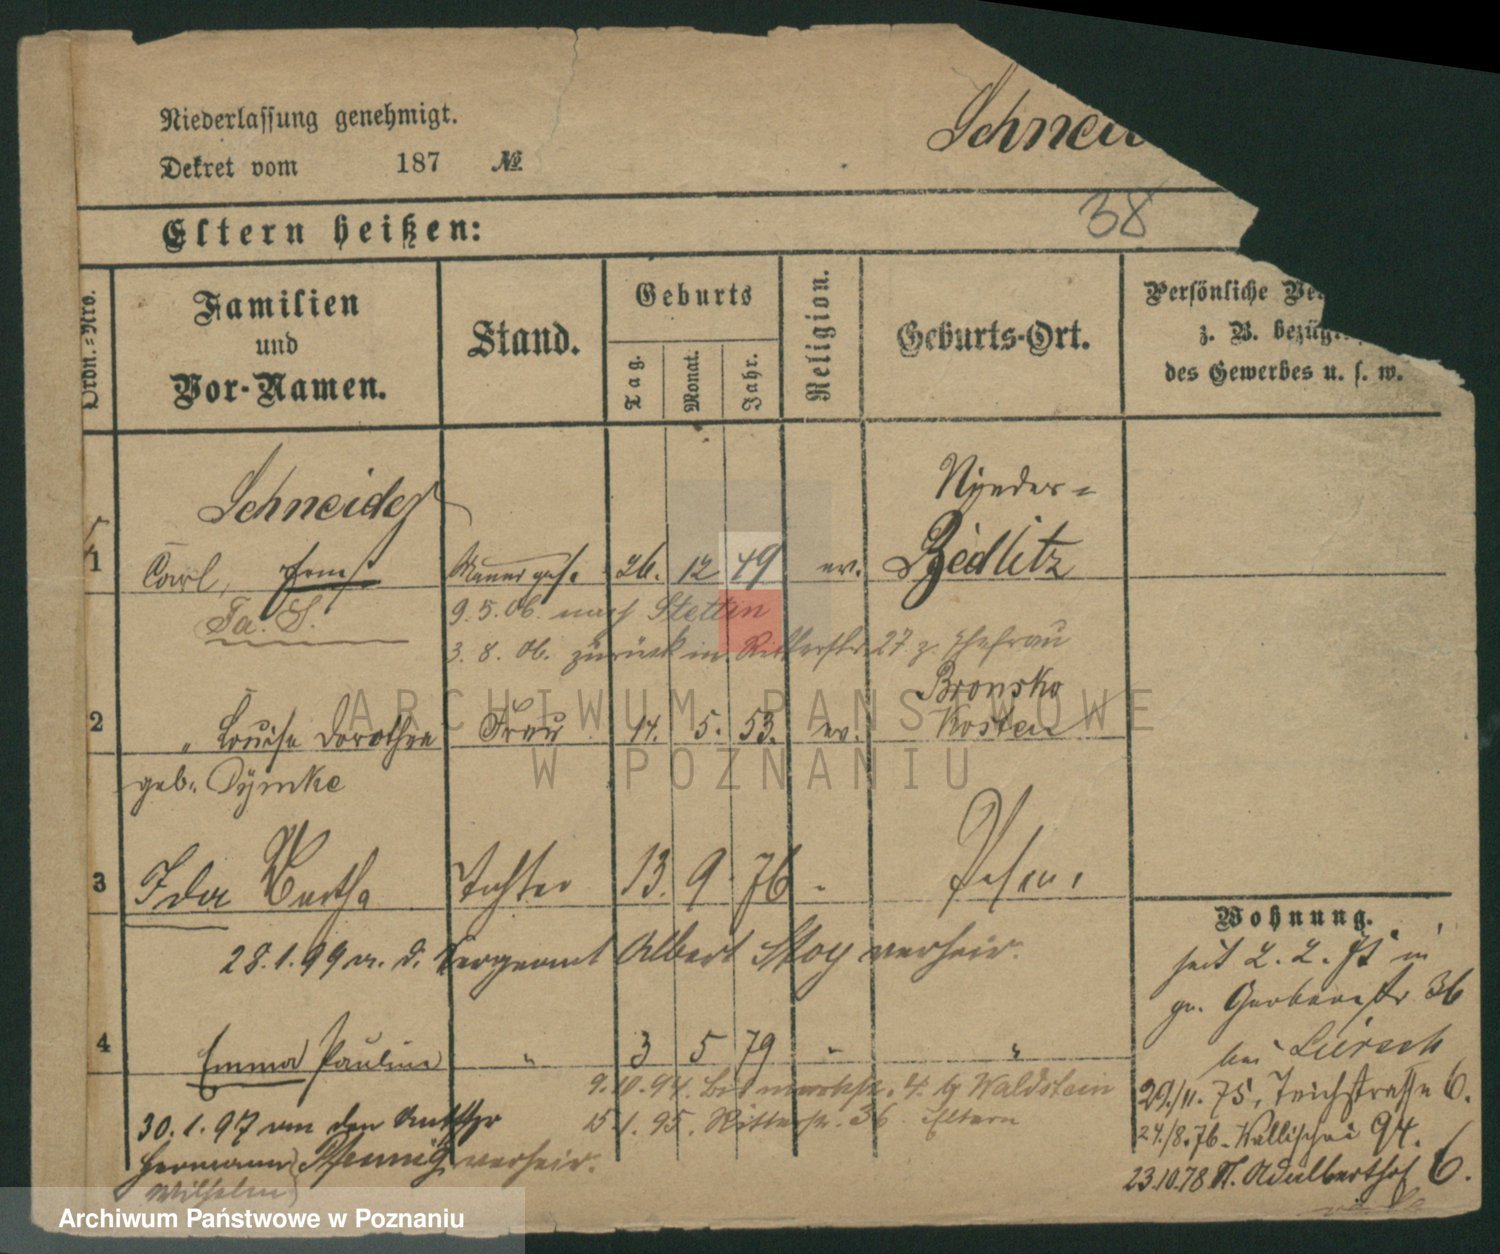 Schnei
Niederlassung genehmigt.
Dekret vom 187 №
38
Eltern heißen:
Ordn.=Nro.
Familien
und
Vor-Namen.
Stand.
Geburts
Tag.
Monat.
Jahr.
Religion.
Geburts-Ort.
Persönliche Ve
z. B. bezüg
des Gewerbes u. s. w.
Schneider
1 Carl, Ernst 26. 12 49 ev.
Zedlitz
Fa. S.
9.5.06. nach Stettin
3. 8. 06. zurück in Ritterstr. 27 z. Ehefrau
Bronsko
2 " Louise Dorothea Frau 14. 5. 53. ev. Kosten
geb. Dymke
3 Ida Bertha Tochter 13. 9. 76 " Posen
28.1.99 m. d. Sergeant Albert Stoy verheir.
4 Emma Pauline " 3 5 79 " "
9.10.94. Bismarckstr. 4. Waldstein
15.1.95. Ritterstr. 36 Eltern
30.1.97 an den
Hermann Pfennig verheir.
Wilhelm
Wohnung.
seit 2. 2. in
gr. Gerberstr 36
bei
29./11. 75, Teichstrasse 6.
24./8.76. Wallischei 94.
23.10.78 St. Adalberthof 6.
ARCHIWUM PAŃSTWOWE
W POZNANIU
Archiwum Państwowe w Poznaniu